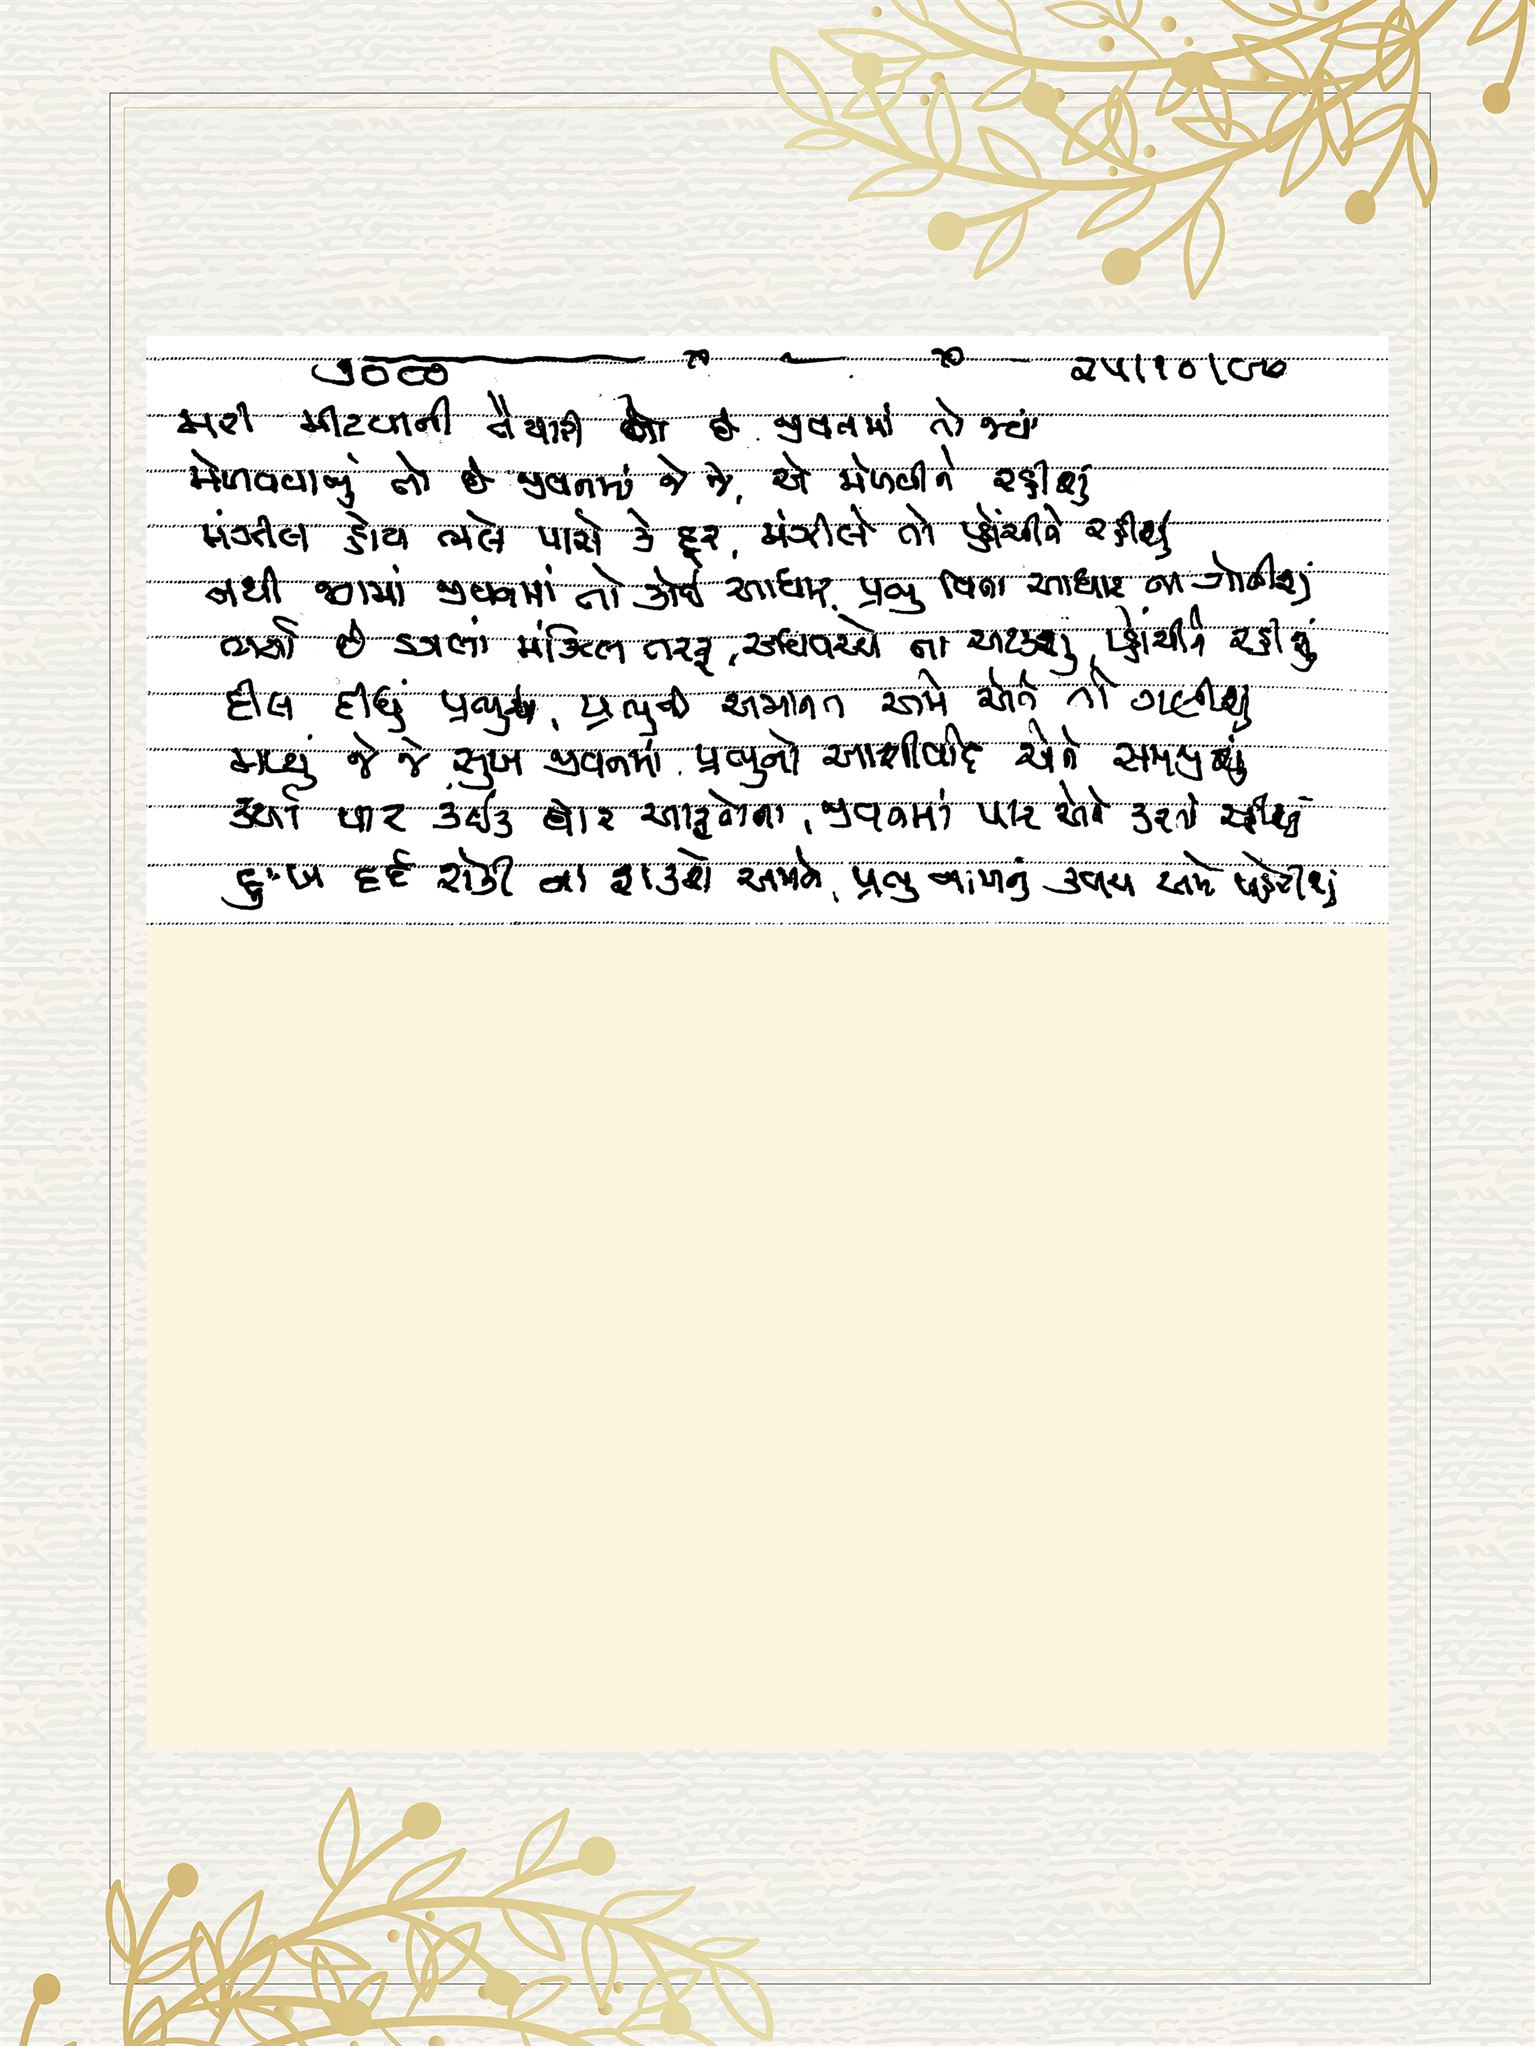 ૭૦૯૭ ૨૫/૧૦/૯૭
મરી મીટવાની તૈયારી તો છે જીવનમાં તો જ્યાં
મેળવવાનું તો છે જીવનમાં જે જે, એ મેળવીને રહીશું
મંઝીલ હોય ભલે પાસે કે દૂર, મંઝીલે તો પ્હોંચીને રહીશું
નથી જગમાં જીવનમાં તો કોઈ આધાર, પ્રભુ વિના આધાર ના ગોતીશું
ભર્યા છે ડગલાં મંઝિલ તરફ, અધવચ્ચે ના અટકશું, પ્હોંચીને રહીશું
દીલ દીધું પ્રભુએ, પ્રભુની અમાનત અમે એને તો ગણીશું
મળ્યું જે જે સુખ જીવનમાં, પ્રભુનો આશીર્વાદ એને સમજીશું
કર્યા પાર કંઈક વાર આફતોના, જીવનમાં પાર એને કરતા રહીશું
દુઃખ દર્દ રોકી ના શકશે અમને, પ્રભુ નામનું કવચ અમે પહેરીશું